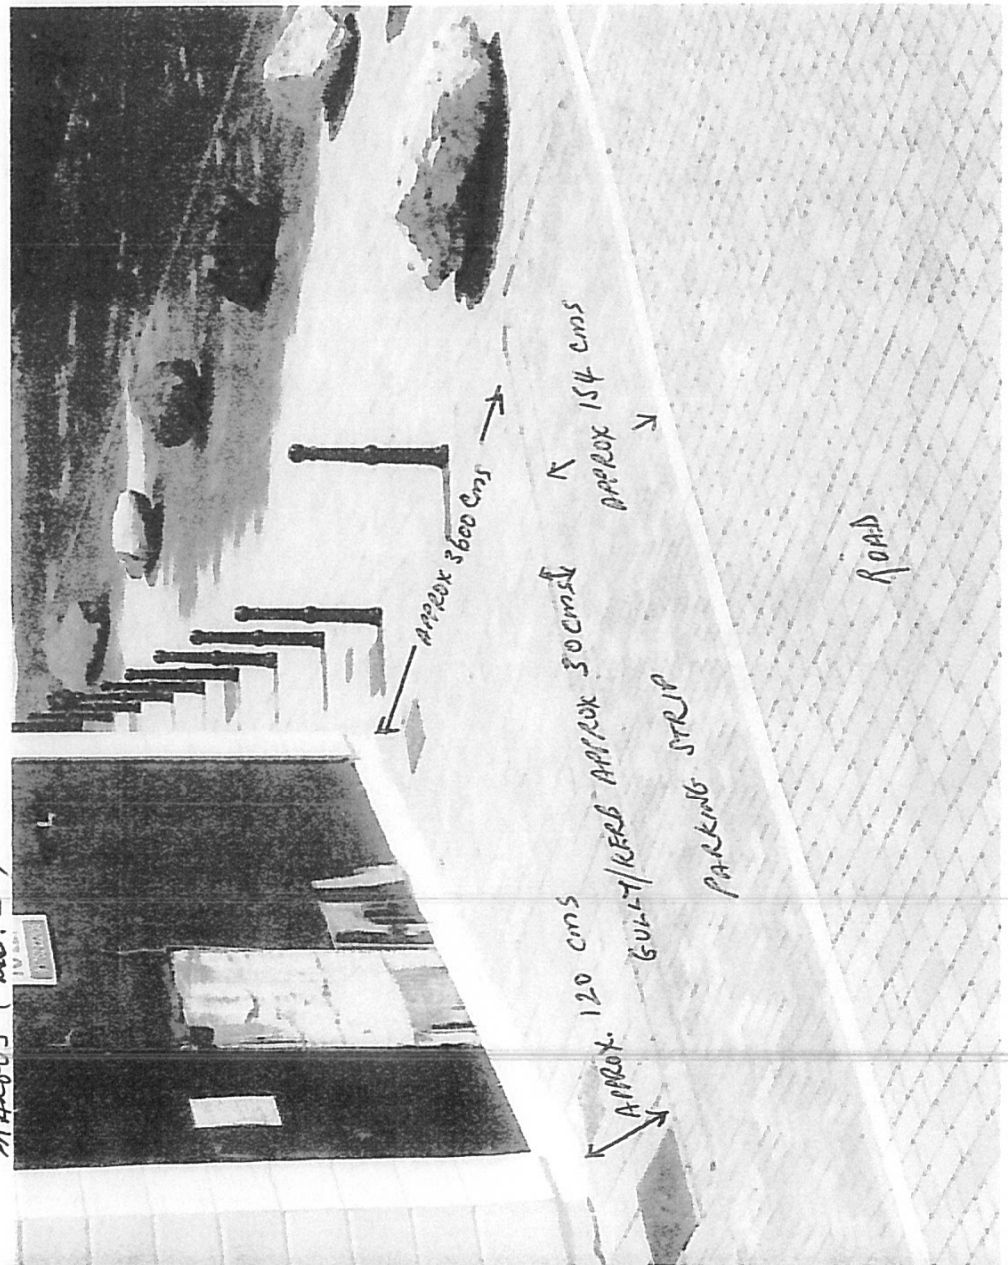 APPROX 3600 cms
APPROX. 120 cms
GULLY/KERB APPROX 30cms
APPROX 154 cms
PARKING STRIP
ROAD